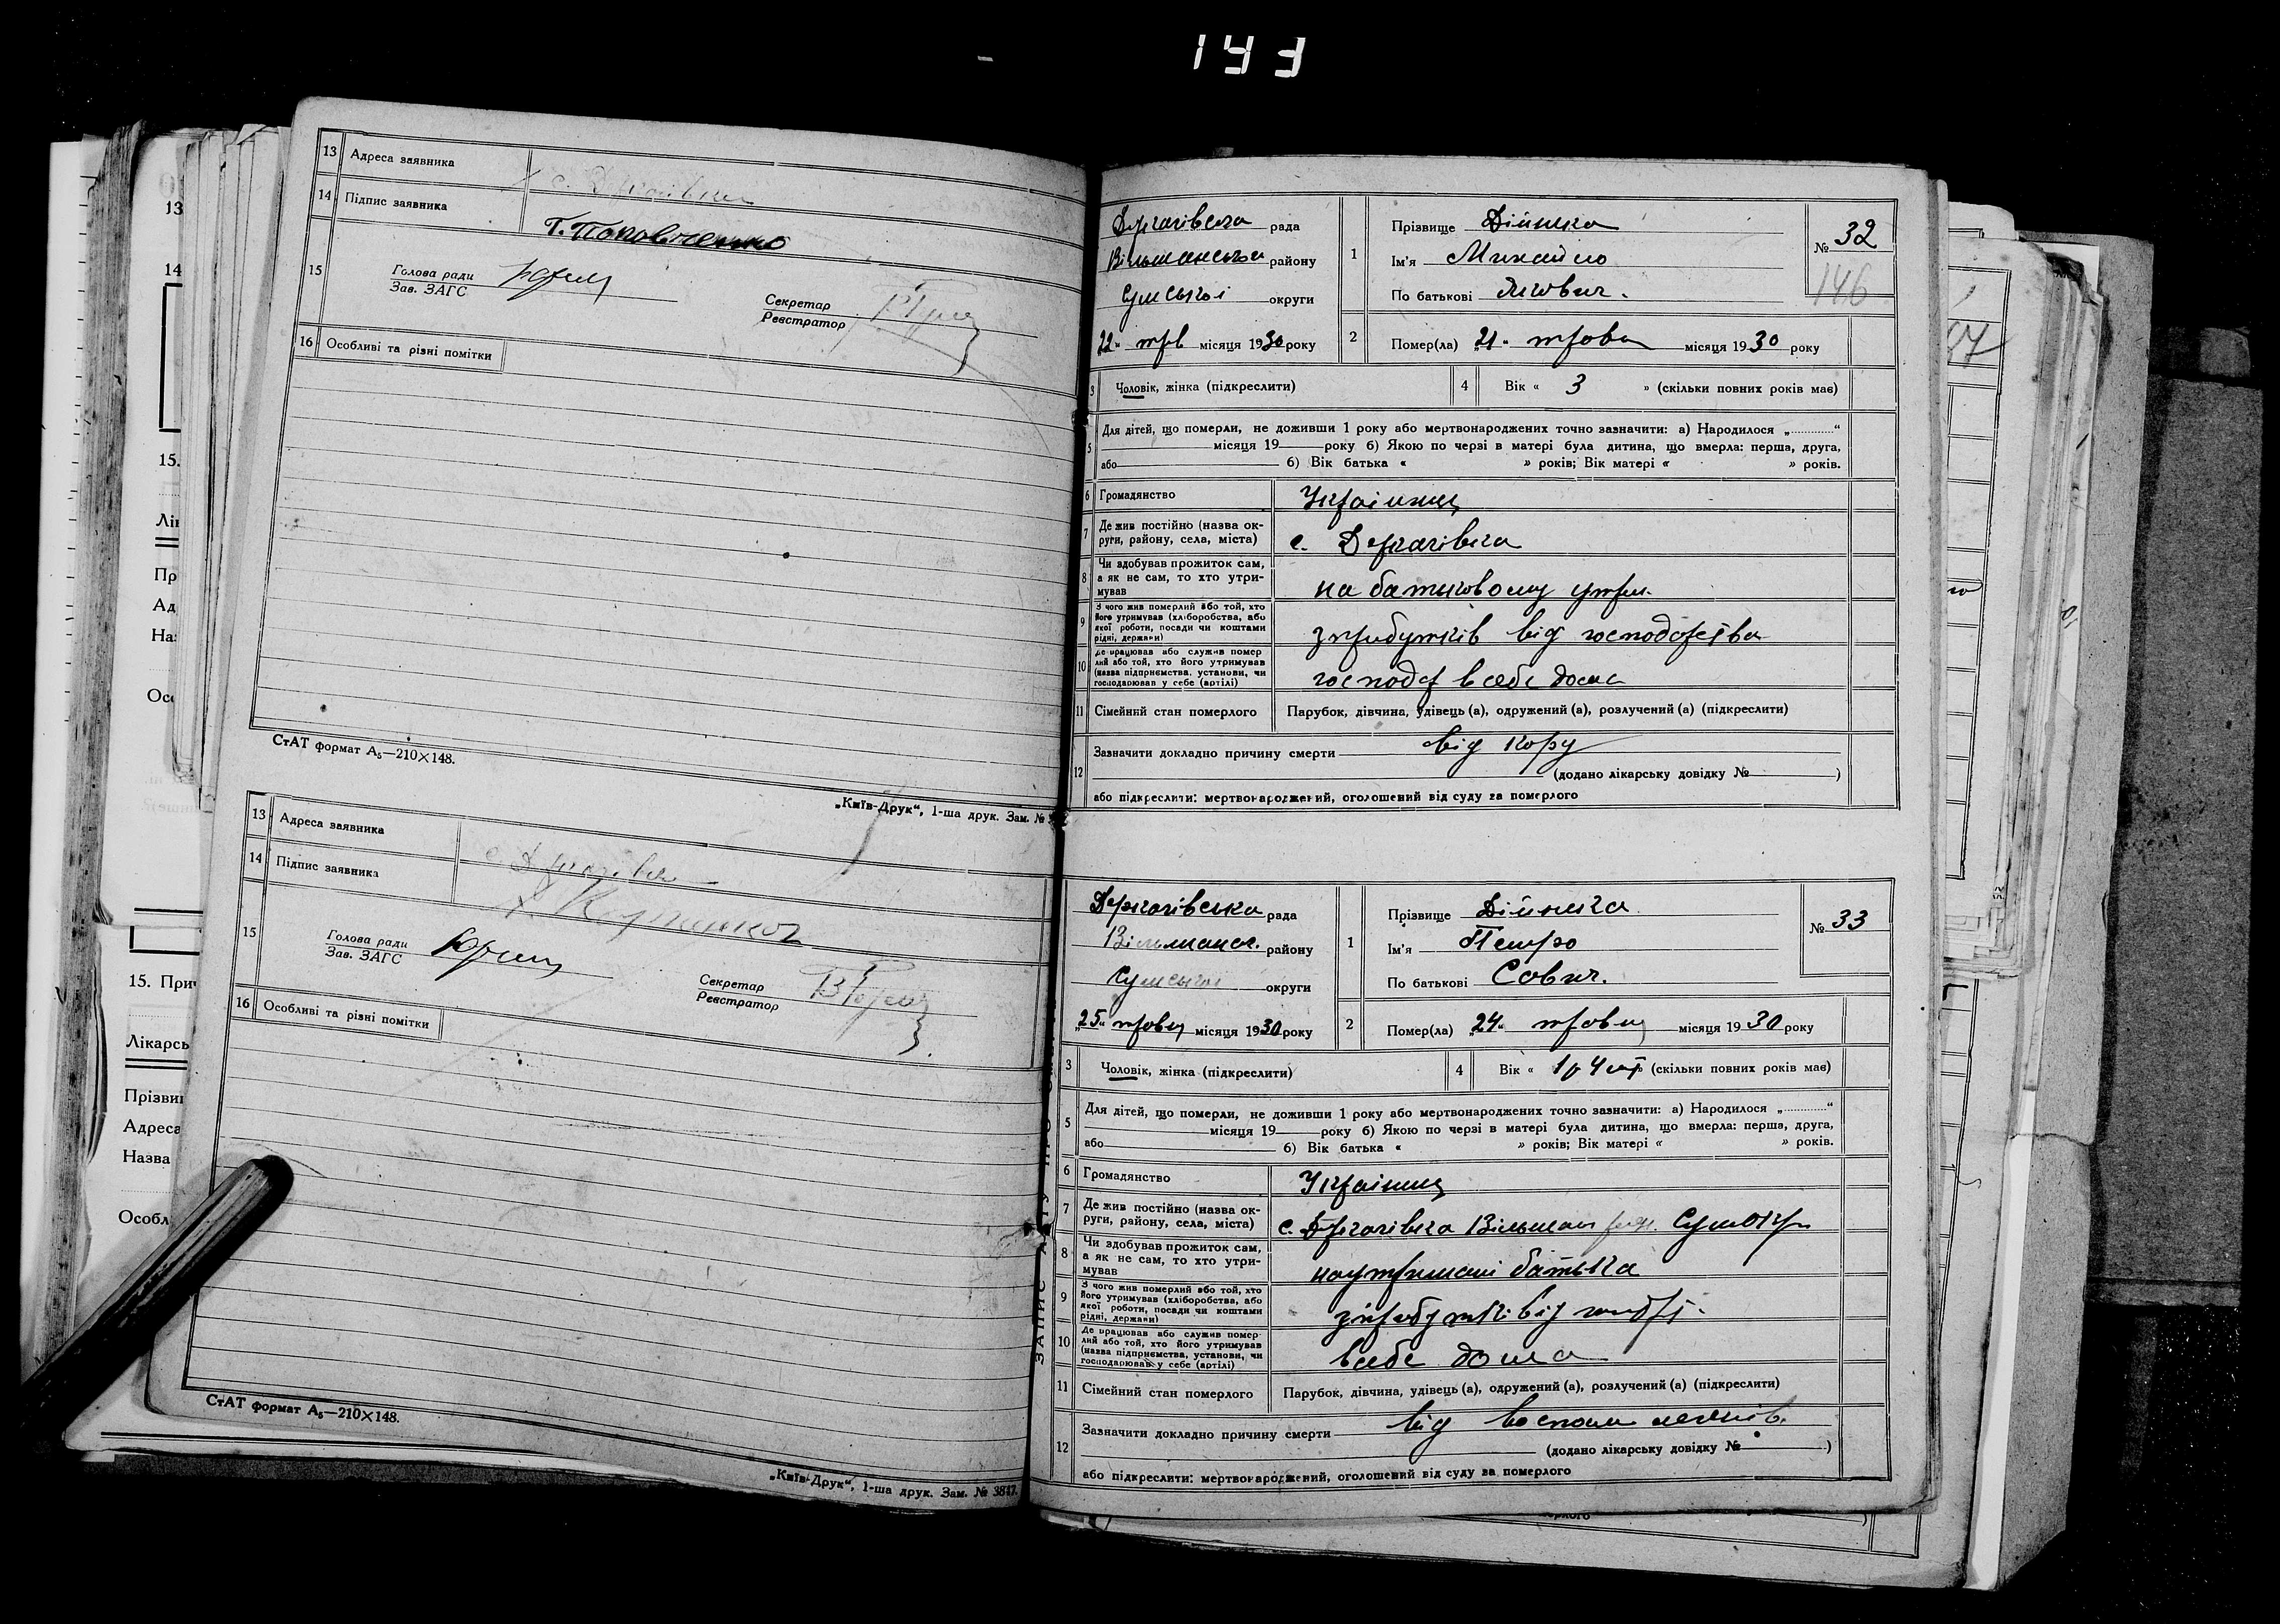 143
13 Адреса заявника с. Деркачівка
14 Підпис заявника Т. Паповченко
15 Голова ради
Зав. ЗАГС
Секретар
Реєстратор
16 Особливі та різні помітки
СтАТ формат А5—210×148.
„Київ-Друк“, 1-ша друк. Зам. №
13 Адреса заявника с. Деркачівка
14 Підпис заявника
15 Голова ради
Зав. ЗАГС
Секретар
Реєстратор
16 Особливі та різні помітки
СтАТ формат А5—210×148.
„Київ-Друк“, 1-ша друк. Зам. № 3847.
Деркачівська рада
Вільшанського району
Сумської округи
„22“ трв місяця 1930 року
1 Прізвище Дійнека
Ім'я Михайло
По батькові Якович.
№ 32
146
2 Помер(ла) „21“ травня місяця 1930 року
3 Чоловік, жінка (підкреслити)
4 Вік « 3 » (скільки повних років має)
5 Для дітей, що померли, не доживши 1 року або мертвонароджених точно зазначити: а) Народилося „............“
місяця 19 року б) Якою по черзі в матері була дитина, що вмерла: перша, друга,
або б) Вік батька « » років; Вік матері « » років.
6 Громадянство Українец
7 Де жив постійно (назва ок-
руги, району, села, міста) с. Деркачівка
8 Чи здобував прожиток сам,
а як не сам, то хто утри-
мував на батьковому утрим.
9 З чого жив померлий або той, хто
його утримував (хліборобства, або
якої роботи, посади чи коштами
рідні, держави) з прибутків від господарства
10 Де працював або служив помер
лий або той, хто його утримував
(назва підприємства, установи, чи
господарював у себе (артілі) господ в себе дома
11 Сімейний стан померлого Парубок, дівчина, удівець (а), одружений (а), розлучений (а) (підкреслити)
12 Зазначити докладно причину смерти від кору
(додано лікарську довідку № )
або підкреслити: мертвонароджений, оголошений від суду за померлого
ЗАПИС АКТУ ПРО
Деркачівська рада
Вільшансь. району
Сумської округи
„25“ травня місяця 1930 року
1 Прізвище Дійнека
Ім'я Петро
По батькові Савич.
№ 33
2 Помер(ла) „24“ травня місяця 1930 року
3 Чоловік, жінка (підкреслити)
4 Вік « 1 р 4 міс » (скільки повних років має)
5 Для дітей, що померли, не доживши 1 року або мертвонароджених точно зазначити: а) Народилося „............“
місяця 19 року б) Якою по черзі в матері була дитина, що вмерла: перша, друга,
або б) Вік батька « » років; Вік матері « » років.
6 Громадянство Українец
7 Де жив постійно (назва ок-
руги, району, села, міста) с. Деркачівка Вільшан рай. Сум окр
8 Чи здобував прожиток сам,
а як не сам, то хто утри-
мував на утримані батька
9 З чого жив померлий або той, хто
його утримував (хліборобства, або
якої роботи, посади чи коштами
рідні, держави) з прибутків від
10 Де працював або служив помер-
лий або той, хто його утримував
(назва підприємства, установи, чи
господарював у себе (артілі) в себе дома
11 Сімейний стан померлого Парубок, дівчина, удівець (а), одружений (а), розлучений (а) (підкреслити)
12 Зазначити докладно причину смерти від воспален легенів.
(додано лікарську довідку № )
або підкреслити: мертвонароджений, оголошений від суду за померлого